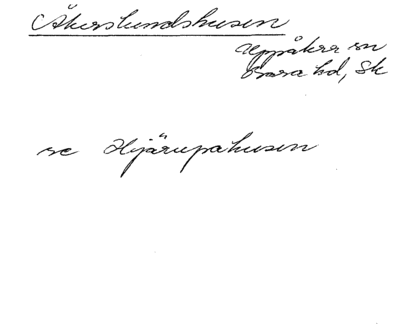 Åkerslundshusen
Uppåkra sn
Bara hd, Sk
se Hjärupahusen